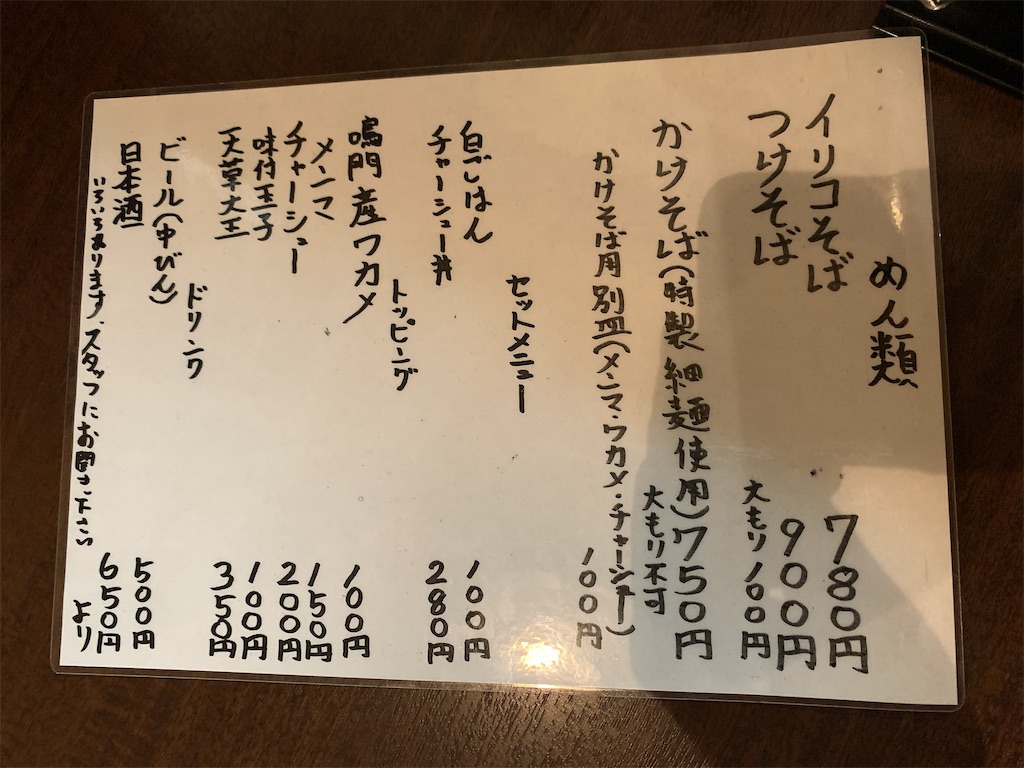 めん類
イリコそば 780円
つけそば 900円
大もり 100円
かけそば(特製細麺使用) 750円
大もり不可
かけそば用別皿(メンマ・ワカメ・チャーシュー) 100円
セットメニュー
白ごはん 100円
チャーシュー丼 280円
トッピング
鳴門産ワカメ 100円
メンマ 150円
チャーシュー 200円
味付玉子 100円
天草大王 350円
ドリンク
ビール(中びん) 500円
日本酒 650円より
いろいろあります、スタッフにお聞き下さい